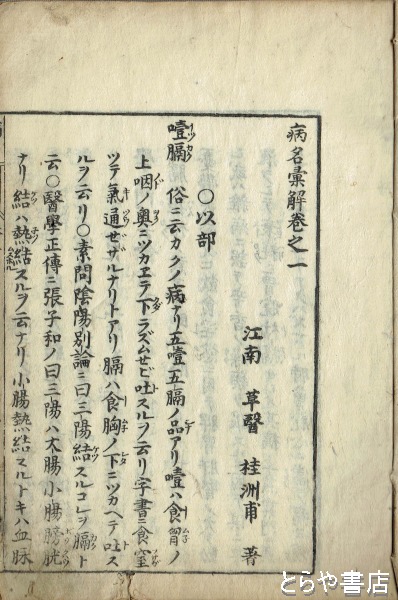 病名彙解巻之一
江南 草醫 桂洲甫 著
〇以部
噎膈 俗ニ云カクノ病ナリ五噎五膈ノ品アリ噎ハ食胃ノ
上咽ノ奥ニツカエテ下ラズムセビ吐スルヲ云リ字書ニ食窒
ツテ氣通ゼザルナリトアリ膈ハ食胸ノ下ニツカヘテ吐ス
ルヲ云リ〇素問陰陽別論ニ曰三陽結スルコレヲ膈ト
云〇醫學正傳ニ張子和ノ曰三陽ハ大腸小腸膀胱
ナリ結ハ熱結スルヲ云ナリ小腸熱結スルトキハ血脉
とらや書店